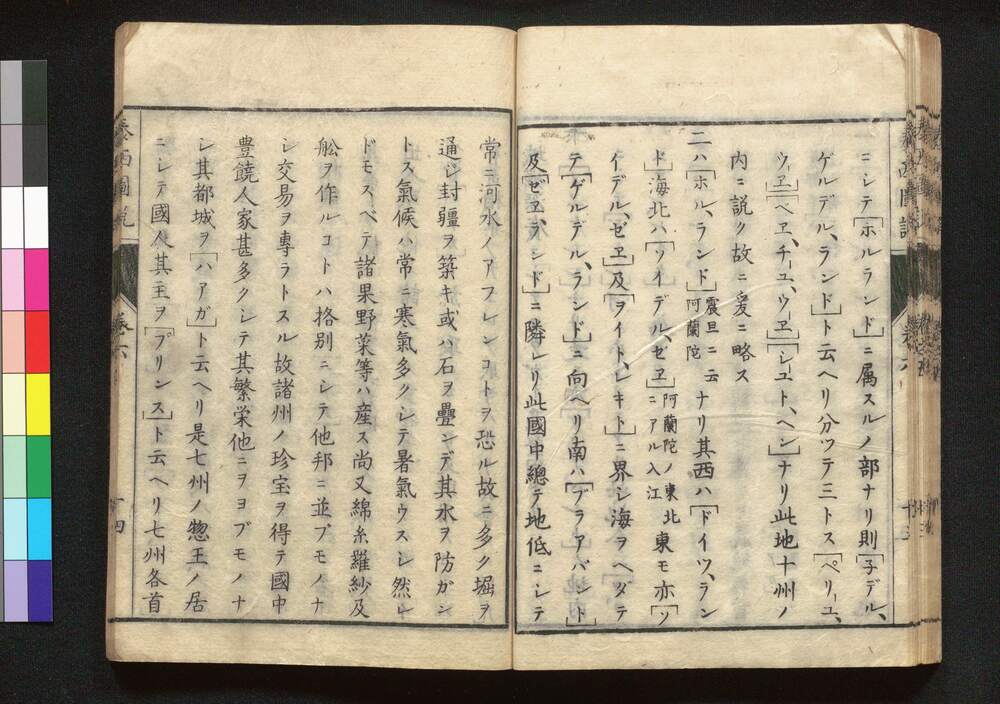 ニシテ「ホルランド」ニ属スルノ部ナリ則「子デル、
ゲルデル、ランド」ト云ヘリ分ツテ三トス「ペリーユ、
ウヱ」「ベヱ、チユ、ウヱ」「シユト、ヘン」ナリ此地十州ノ
内ニ説ク故ニ爰ニ略ス
二ハ「ホル、ランド」震旦ニ云阿蘭陀ナリ其西ハ「ドイツ、ラン
ド」海北ハ「ソイデル、ゼヱ」阿蘭陀ノ東北ニアル入江東モ亦「ソ
イデル、ゼヱ」及「ヲイト、レキト」ニ界シ海ヲヘダテ
テ「ゲルデル、ランド」ニ向ヘリ南ハ「ブラアバント」
及「ゼヱ、ランド」ニ隣レリ此國中總テ地低ニシテ
常ニ河水ノアフレンコトヲ恐ル故ニ多ク堀ヲ
通シ封疆ヲ築キ或ハ石ヲ疊ンデ其水ヲ防ガン
トス氣候ハ常ニ寒氣多クシテ暑氣ウスシ然レ
ドモスベテ諸果野菜等ハ産ス尚又綿糸羅紗及
舩ヲ作ルコトハ格別ニシテ他邦ニ並ブモノナ
シ交易ヲ專ラトスル故諸州ノ珍宝ヲ得テ國中
豊饒人家甚多クシテ其繁栄他ニヲヨブモノナ
シ其都城ヲ「ハアガ」ト云ヘリ是七州ノ惣王ノ居
ニシテ國人其主ヲ「プリンス」ト云ヘリ七州各首
泰西圖説
巻六
十四